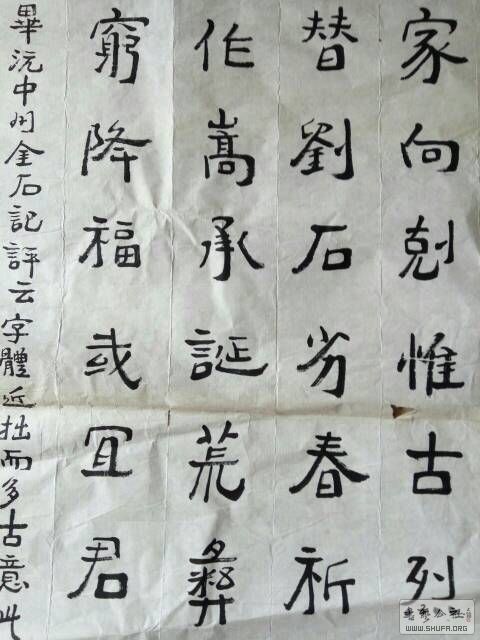 家向剋惟古列
替劉石劣春祈
作嵩承誕荒彝
窮降福或宜君
畢沅中州金石記評云字體近拙而多古意此
WWW.SHUFA.ORG